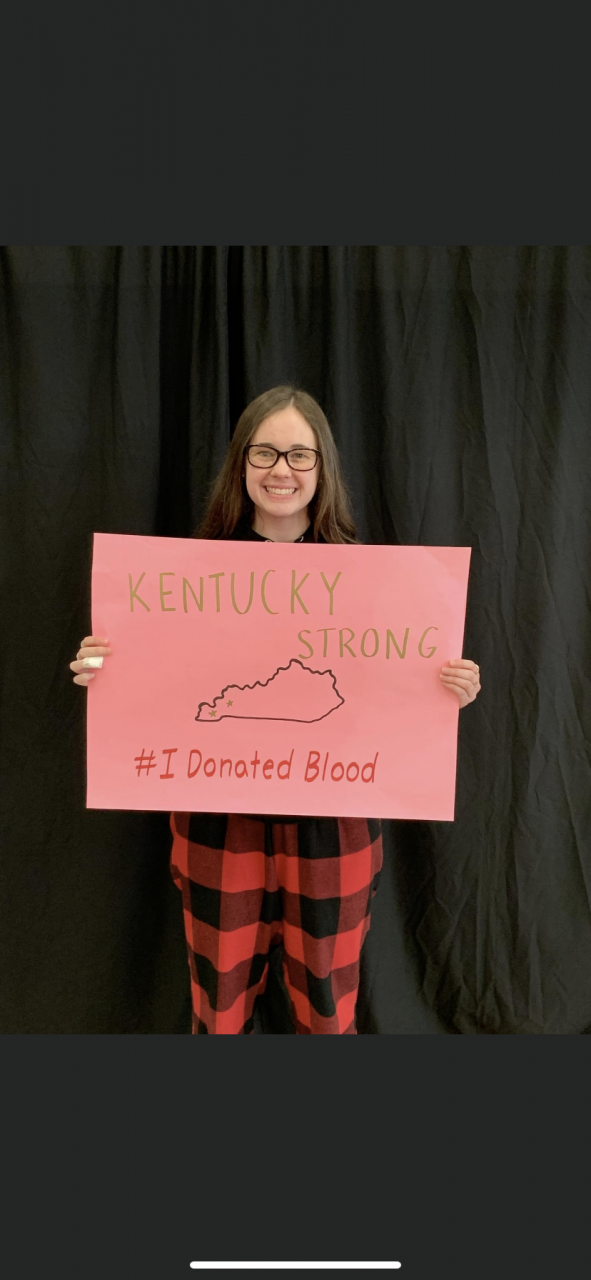 KENTUCKY
STRONG
#I Donated Blood